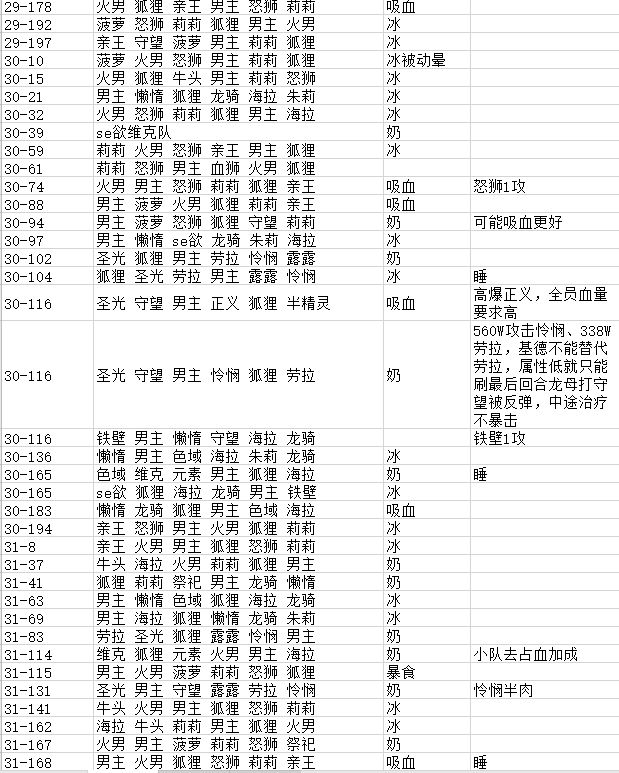 29-178 火男 狐狸 亲王 男主 怒狮 莉莉 吸血
29-192 菠萝 怒狮 莉莉 狐狸 男主 火男 冰
29-197 亲王 守望 菠萝 男主 莉莉 狐狸 冰
30-10 菠萝 火男 怒狮 男主 莉莉 狐狸 冰被动晕
30-15 火男 狐狸 牛头 男主 莉莉 怒狮 冰
30-21 男主 懒惰 狐狸 龙骑 海拉 朱莉 冰
30-32 火男 怒狮 莉莉 狐狸 男主 海拉 冰
30-39 se欲维克队 奶
30-59 莉莉 火男 怒狮 亲王 男主 狐狸 冰
30-61 莉莉 怒狮 男主 血狮 火男 狐狸
30-74 火男 男主 怒狮 莉莉 狐狸 亲王 吸血 怒狮1攻
30-88 男主 菠萝 火男 狐狸 莉莉 亲王 吸血
30-94 男主 菠萝 怒狮 狐狸 守望 莉莉 奶 可能吸血更好
30-97 男主 懒惰 se欲 龙骑 朱莉 海拉 冰
30-102 圣光 狐狸 男主 劳拉 怜悯 露露 奶
30-104 狐狸 圣光 劳拉 男主 露露 怜悯 冰 睡
30-116 圣光 守望 男主 正义 狐狸 半精灵 吸血 高爆正义，全员血量
要求高
30-116 圣光 守望 男主 怜悯 狐狸 劳拉 奶 560W攻击怜悯、338W
劳拉，基德不能替代
劳拉，属性低就只能
刷最后回合龙母打守
望被反弹，中途治疗
不暴击
30-116 铁壁 男主 懒惰 守望 海拉 龙骑 铁壁1攻
30-136 懒惰 男主 色域 海拉 朱莉 龙骑 冰
30-165 色域 维克 元素 男主 狐狸 海拉 奶 睡
30-165 se欲 狐狸 海拉 龙骑 男主 铁壁 冰
30-183 懒惰 龙骑 狐狸 男主 色域 海拉 吸血
30-194 亲王 怒狮 男主 火男 狐狸 莉莉 冰
31-8 亲王 火男 男主 狐狸 怒狮 莉莉 冰
31-37 牛头 海拉 火男 莉莉 狐狸 男主 奶
31-41 狐狸 莉莉 祭祀 男主 龙骑 懒惰 奶
31-63 男主 懒惰 色域 狐狸 海拉 龙骑 冰
31-69 男主 海拉 狐狸 懒惰 龙骑 朱莉 冰
31-83 劳拉 圣光 狐狸 露露 怜悯 男主 奶
31-114 维克 狐狸 元素 火男 男主 海拉 奶 小队去占血加成
31-115 男主 火男 菠萝 莉莉 怒狮 狐狸 暴食
31-131 圣光 男主 守望 露露 劳拉 怜悯 奶 怜悯半肉
31-141 牛头 火男 男主 狐狸 怒狮 莉莉 冰
31-162 海拉 牛头 莉莉 男主 狐狸 火男 冰
31-167 火男 男主 菠萝 莉莉 怒狮 祭祀 奶
31-168 男主 火男 狐狸 怒狮 莉莉 亲王 吸血 睡